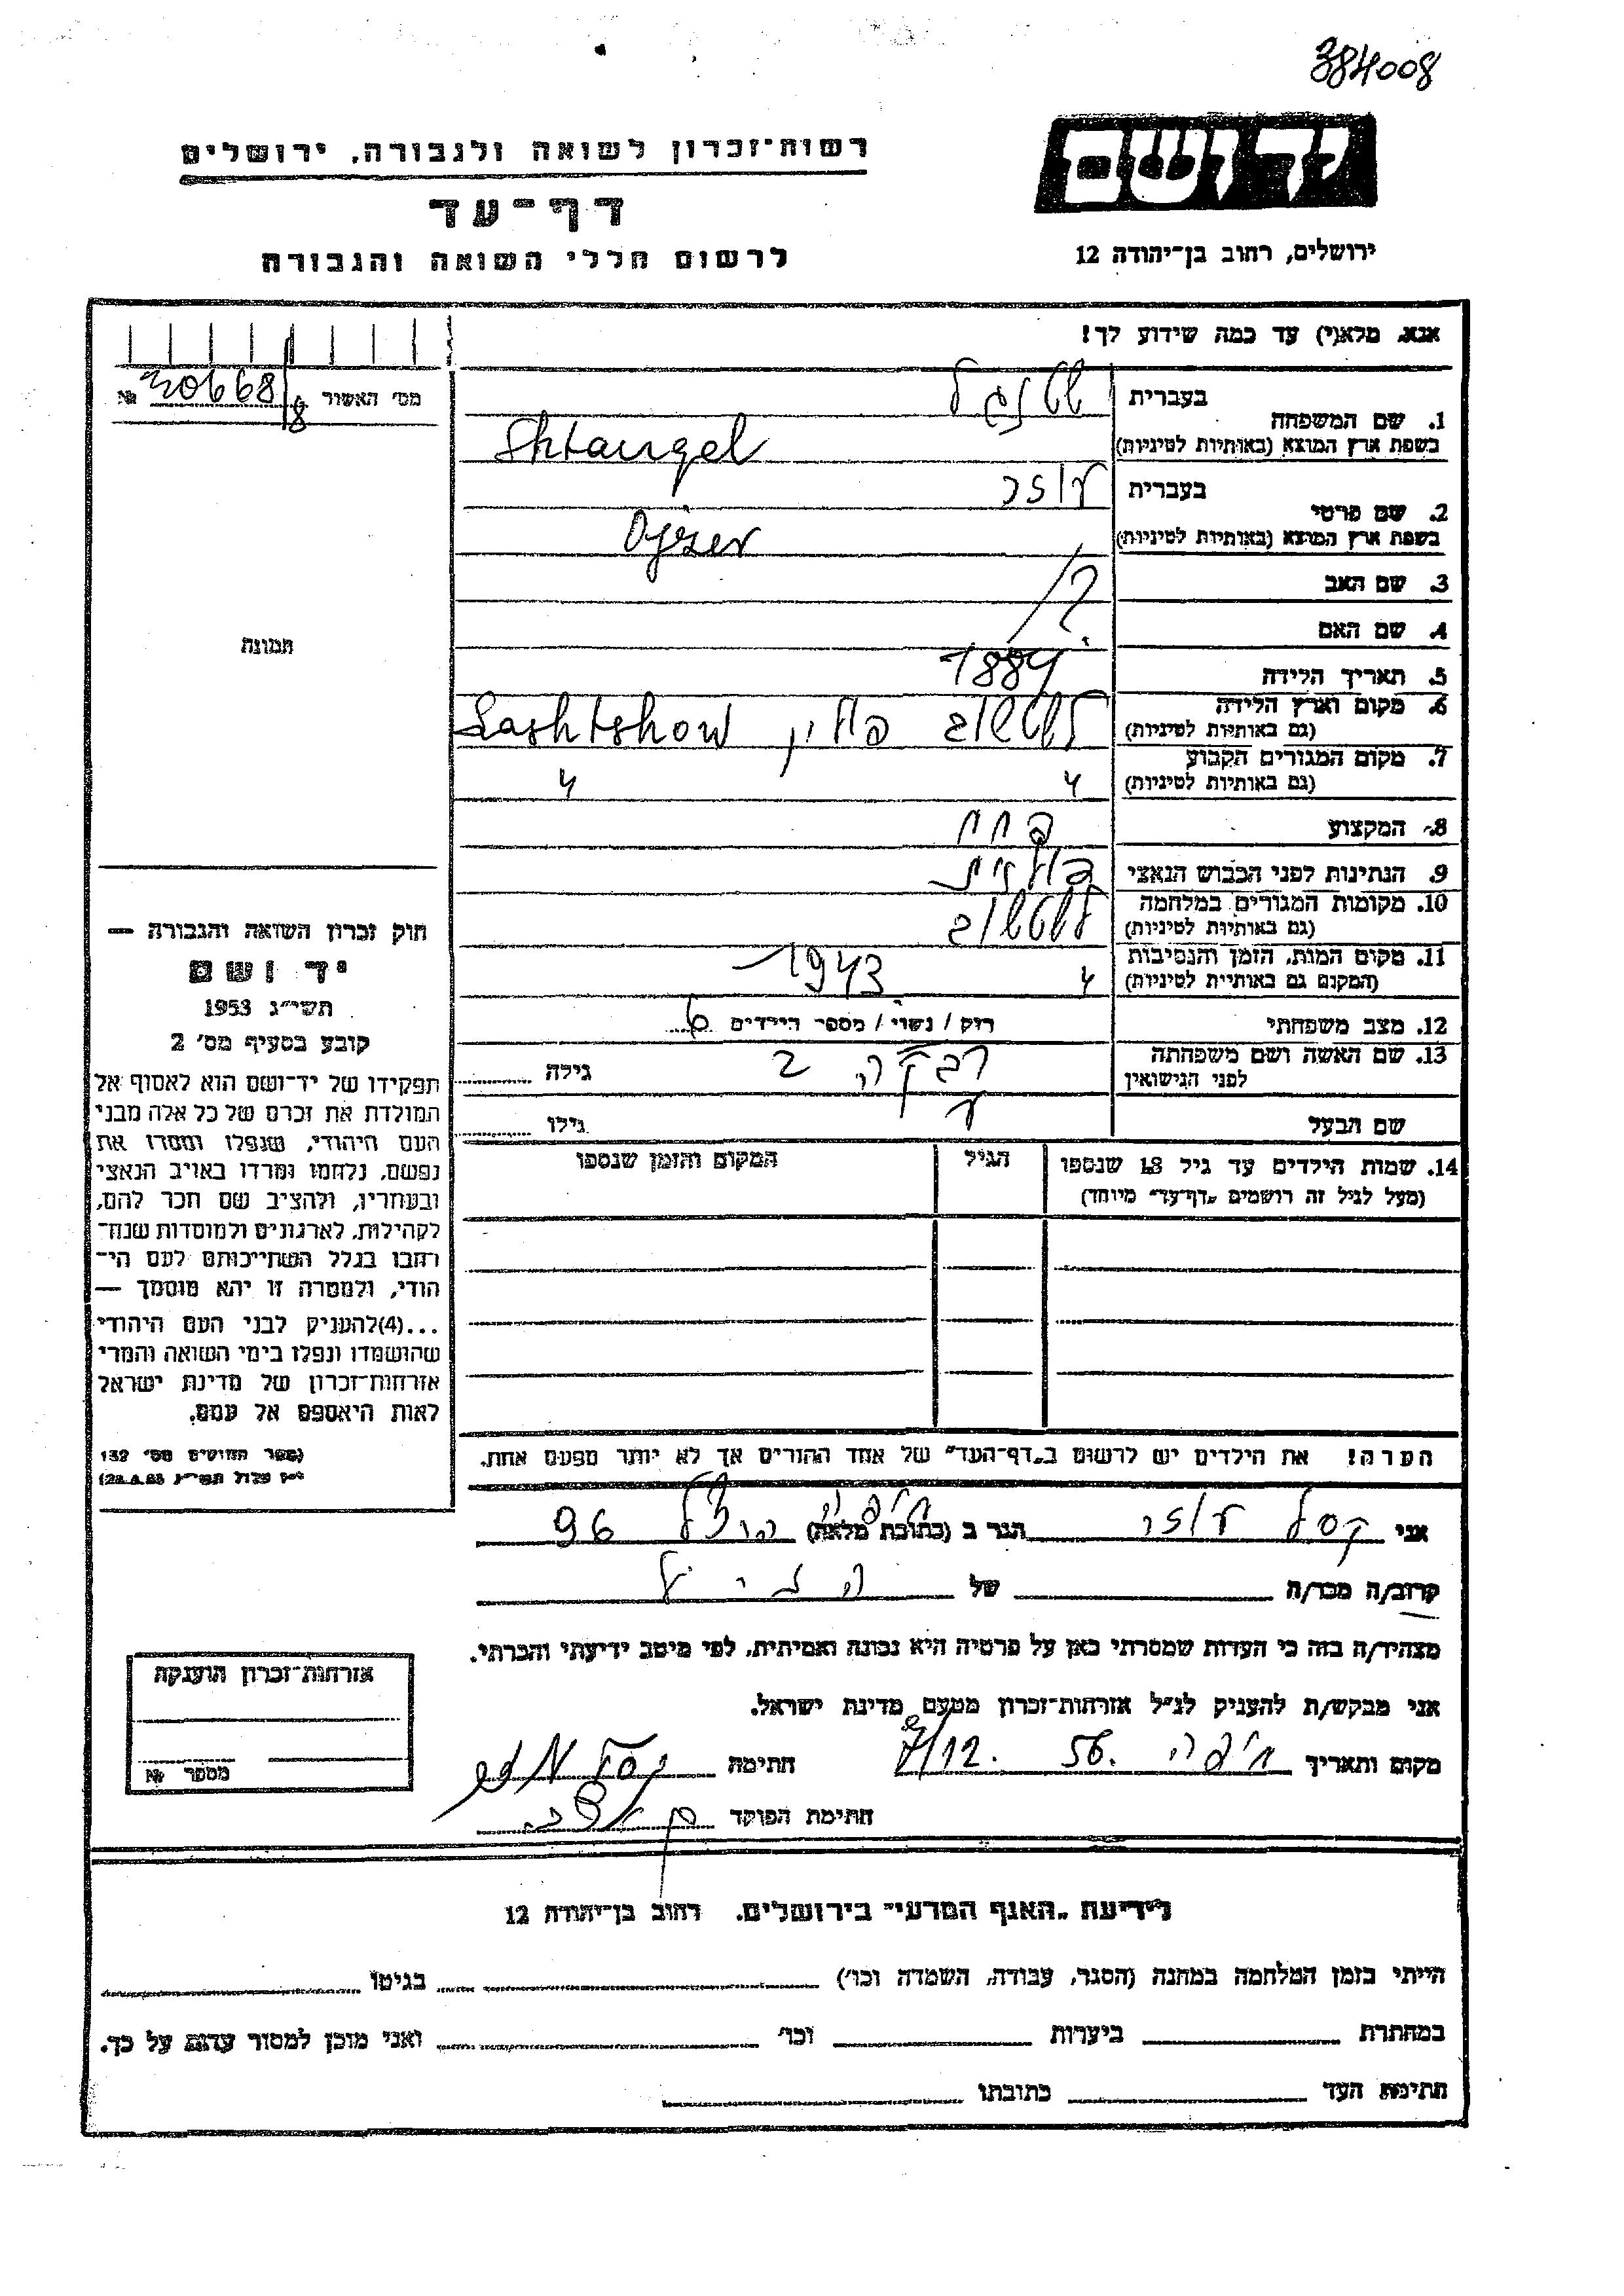 384008
יד ושם
רשות־זכרון לשואה ולגבורה, ירושלים
דף־עד
לרשום חללי השואה והגבורה
ירושלים, רחוב בן־יהודה 12
אנא, מלא(י) עד כמה שידוע לך!
מס׳ האשור № 206688
1. שם המשפחה
בעברית
בשפת ארץ המוצא (באותיות לטיניות) Shtangel
2. שם פרטי
בעברית עוזר
בשפת ארץ המוצא (באותיות לטיניות) Ojzer
3. שם האב ?
4. שם האם
5. תאריך הלידה 1884
6. מקום וארץ הלידה
(גם באותיות לטיניות) לשטשוב פולין Lashtshow
7. מקום המגורים הקבוע
(גם באותיות לטיניות) " "
8. המקצוע פחח
9. הנתינות לפני הכבוש הנאצי פולנית
10. מקומות המגורים במלחמה
(גם באותיות לטיניות) לשטשוב
11. מקום המות, הזמן והנסיבות
(המקום גם באותיות לטיניות) " 1943
12. מצב משפחתי רוק / נשוי / מספר הילדים 6
13. שם האשה ושם משפחתה
לפני הנישואין רבקה ? גילה
שם הבעל גילו
14. שמות הילדים עד גיל 18 שנספו
(מעל לגיל זה רושמים „דף־עד״ מיוחד)
הגיל
המקום והזמן שנספו
הערה! את הילדים יש לרשום ב„דף־העד״ של אחד ההורים אך לא יותר מפעם אחת.
תמונה
חוק זכרון השואה והגבורה —
יד ושם
תשי״ג 1953
קובע בסעיף מס׳ 2
תפקידו של יד־ושם הוא לאסוף אל
המולדת את זכרם של כל אלה מבני
העם היהודי, שנפלו ומסרו את
נפשם, נלחמו ומרדו באויב הנאצי
ובעוזריו, ולהציב שם וזכר להם,
לקהילות, לארגונים ולמוסדות שנח־
רבו בגלל השתייכותם לעם הי־
הודי, ולמטרה זו יהא מוסמך —
...(4)להעניק לבני העם היהודי
שהושמדו ונפלו בימי השואה והמרי
אזרחות־זכרון של מדינת ישראל
לאות היאספם אל עמם.
(ספר החוקים מס׳ 132
י״ז אלול תשי״ג 28.8.53)
אני קסל עוזר הגר ב (כתובת מלאה) חיפה 96
קרוב/ה מכר/ה של הנ״ל
מצהיר/ה בזה כי העדות שמסרתי כאן על פרטיה היא נכונה ואמיתית, לפי מיטב ידיעתי והכרתי.
אני מבקש/ת להעניק לנ״ל אזרחות־זכרון מטעם מדינת ישראל.
מקום ותאריך חיפה 7/12. 56. חתימה
חתימת הפוקד
אזרחות־זכרון הוענקה
מספר №
לידיעת „האגף המדעי״ בירושלים. רחוב בן־יהודה 12
הייתי בזמן המלחמה במחנה (הסגר, עבודה, השמדה וכו׳) בגיטו
במחתרת ביערות וכו׳ ואני מוכן למסור עדות על כך.
חתימת העד כתובתו